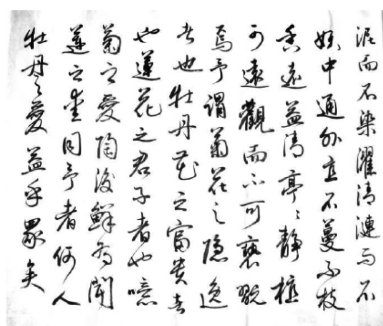 泥而不染濯清涟而不
妖中通外直不蔓不枝
香远益清亭亭静植
可远觀而不可褻翫
焉予謂菊花之隐逸
者也牡丹花之富贵者
也蓮花之君子者也噫
菊之愛陶後鮮有聞
蓮之愛同予者何人
牡丹之愛益乎眾矣